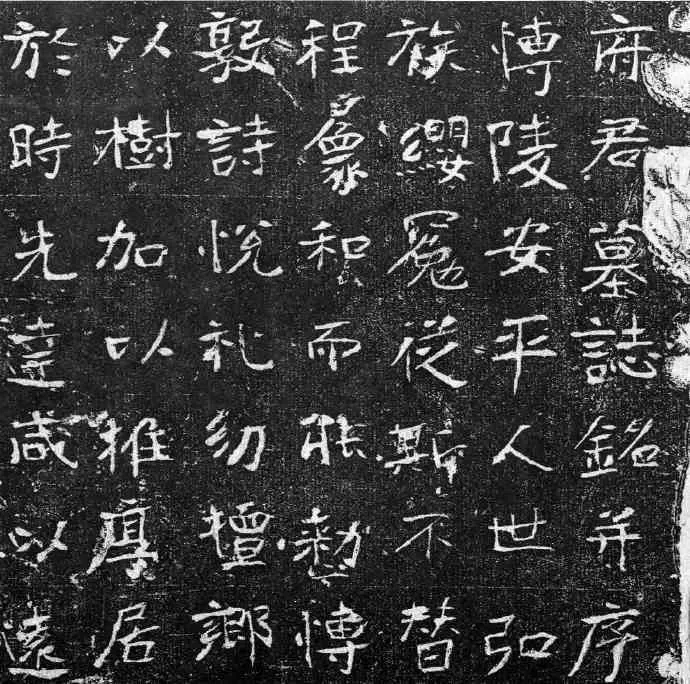 府君墓誌銘并序
愽陵安平人世弘
族纓冕從斯不替
程和而能勤愽
敦詩悅礼幼擅鄉
以樹加以推厚居
於時先達咸以遠